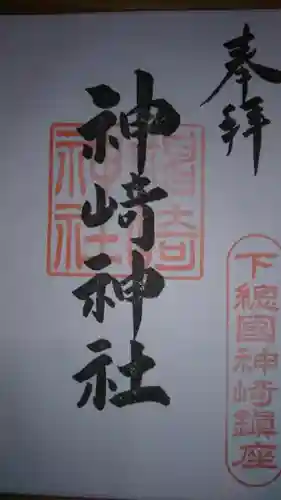 奉拝
神崎神社
神崎神社
下總國神崎鎮座